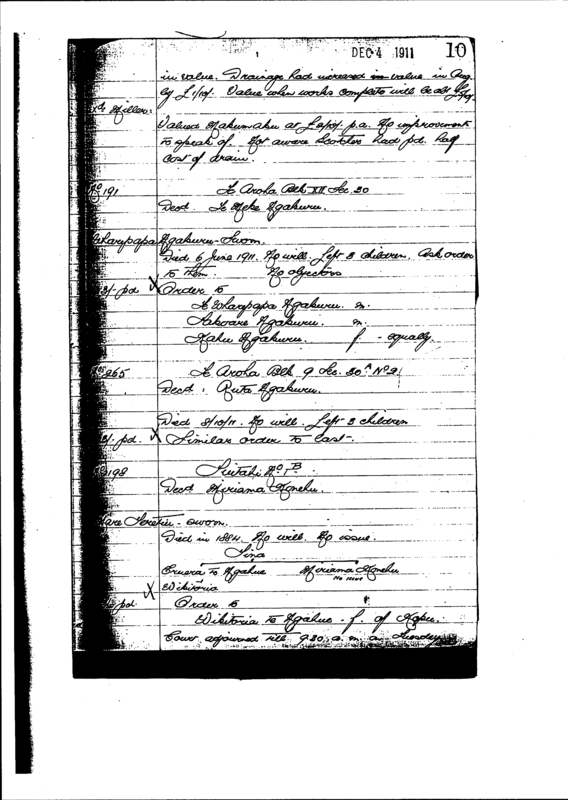 DEC 4 1911 10
in value. Drainage had increased in value in Aug
by £1/10/-. Value when works complete will be abt
xd Miller.
Valued Makumaku at p.a. No improvements
to speak of. Not aware Scotcher had pd. half
cost of drain.
No 191 Te Aroha Blk XII Sec. 20
Decd. Te Meke Ngakuru.
Wharepapa Ngakuru - Sworn.
Died 6 June 1911. No will. Left 3 children. Ask order
to them. No objectors
3/- pd. X Order to
Te Wharepapa Ngakuru. m.
Ngakuru. m.
Ngakuru. f. - equally.
No 265 Te Aroha Blk 9 Sec. 30A No 2
Decd. Ruta Ngakuru.
Died 3/10/11. No will. Left 3 children
3/- pd. X Similar order to last -
198 No B
Decd Miriama Konehu.
sworn.
Died in 1884. No will. No issue.
Tina
Eruera Te Ngahue Miriama Konehu
No issue
Wikitoria
pd. X Order to
Wikitoria Te Ngahue - f. of
Court adjourned till 9.30 a.m. on Tuesday